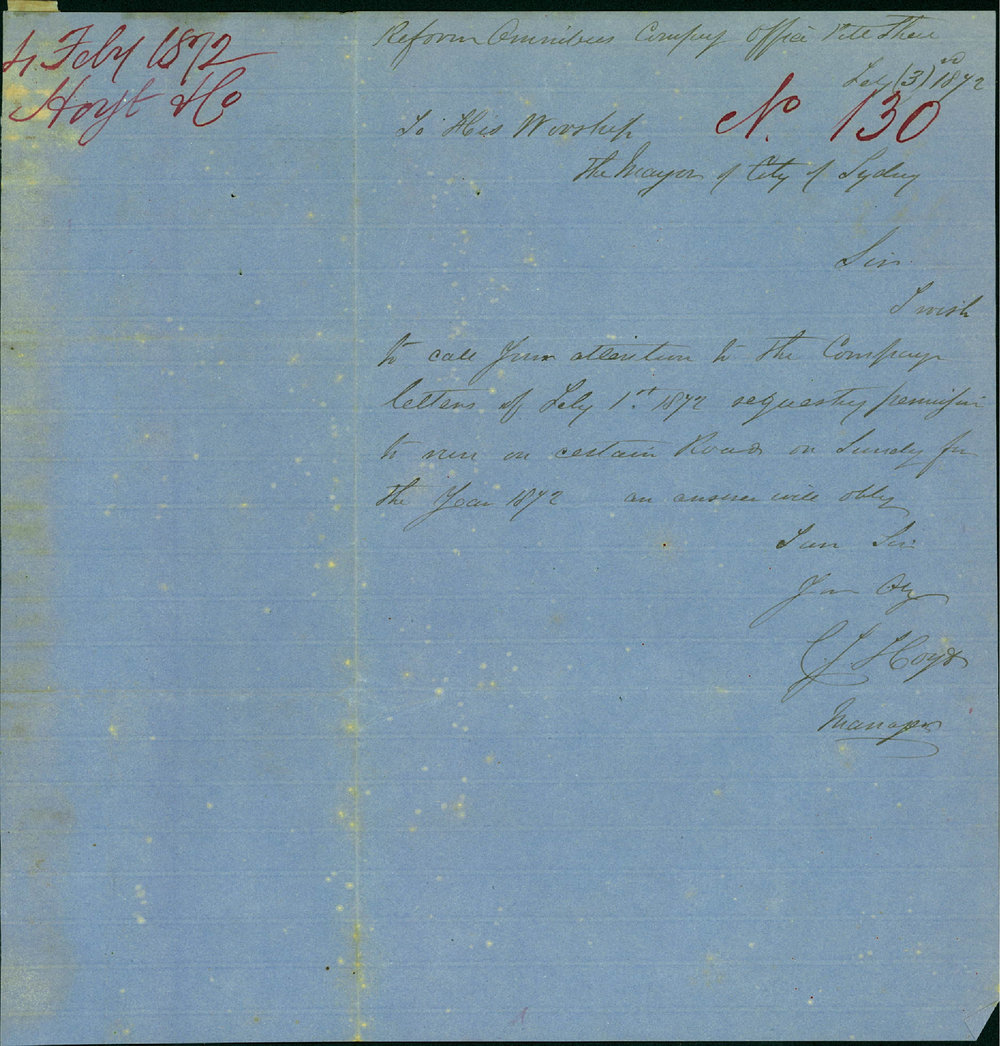 4 Feby 1872
Hoyt & Co
Reform Omnibus Company Office Pitt Street
Feby (3)rd 1872
No. 130
To His Worship
The Mayor of City of Sydney
Sir
I wish
to call your attention to the Companys
letters of Feby 1st. 1872 requesting permission
to run on certain Roads on Sunday for
the Year 1872 an answer will oblige
I am Sir
Your
Hoyt
Manager